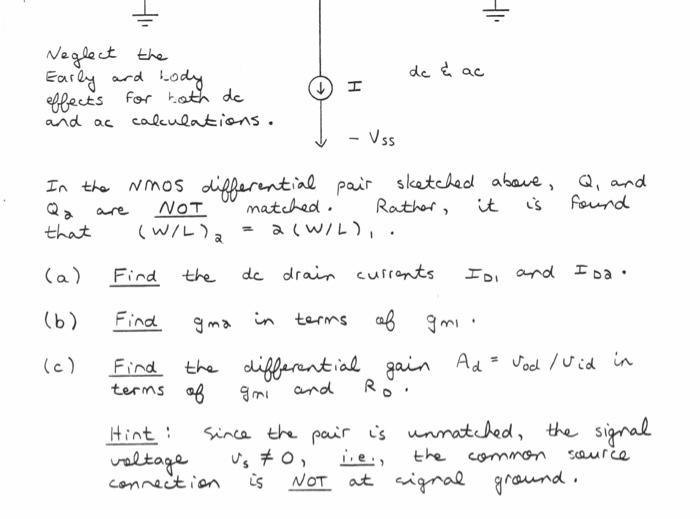 Neglect the
Early and body
effects for both dc
and ac calculations.
I
dc & ac
- Vss
In the NMOS differential pair sketched above, Q1 and
Q2 are NOT matched. Rather, it is found
that (W/L)2 = 2(W/L)1.
(a) Find the dc drain currents ID1 and ID2.
(b) Find gm2 in terms of gm1.
(c) Find the differential gain Ad = vod/vid in
terms of gm1 and RD.
Hint: Since the pair is unmatched, the signal
voltage vs ≠ 0, i.e., the common source
connection is NOT at signal ground.